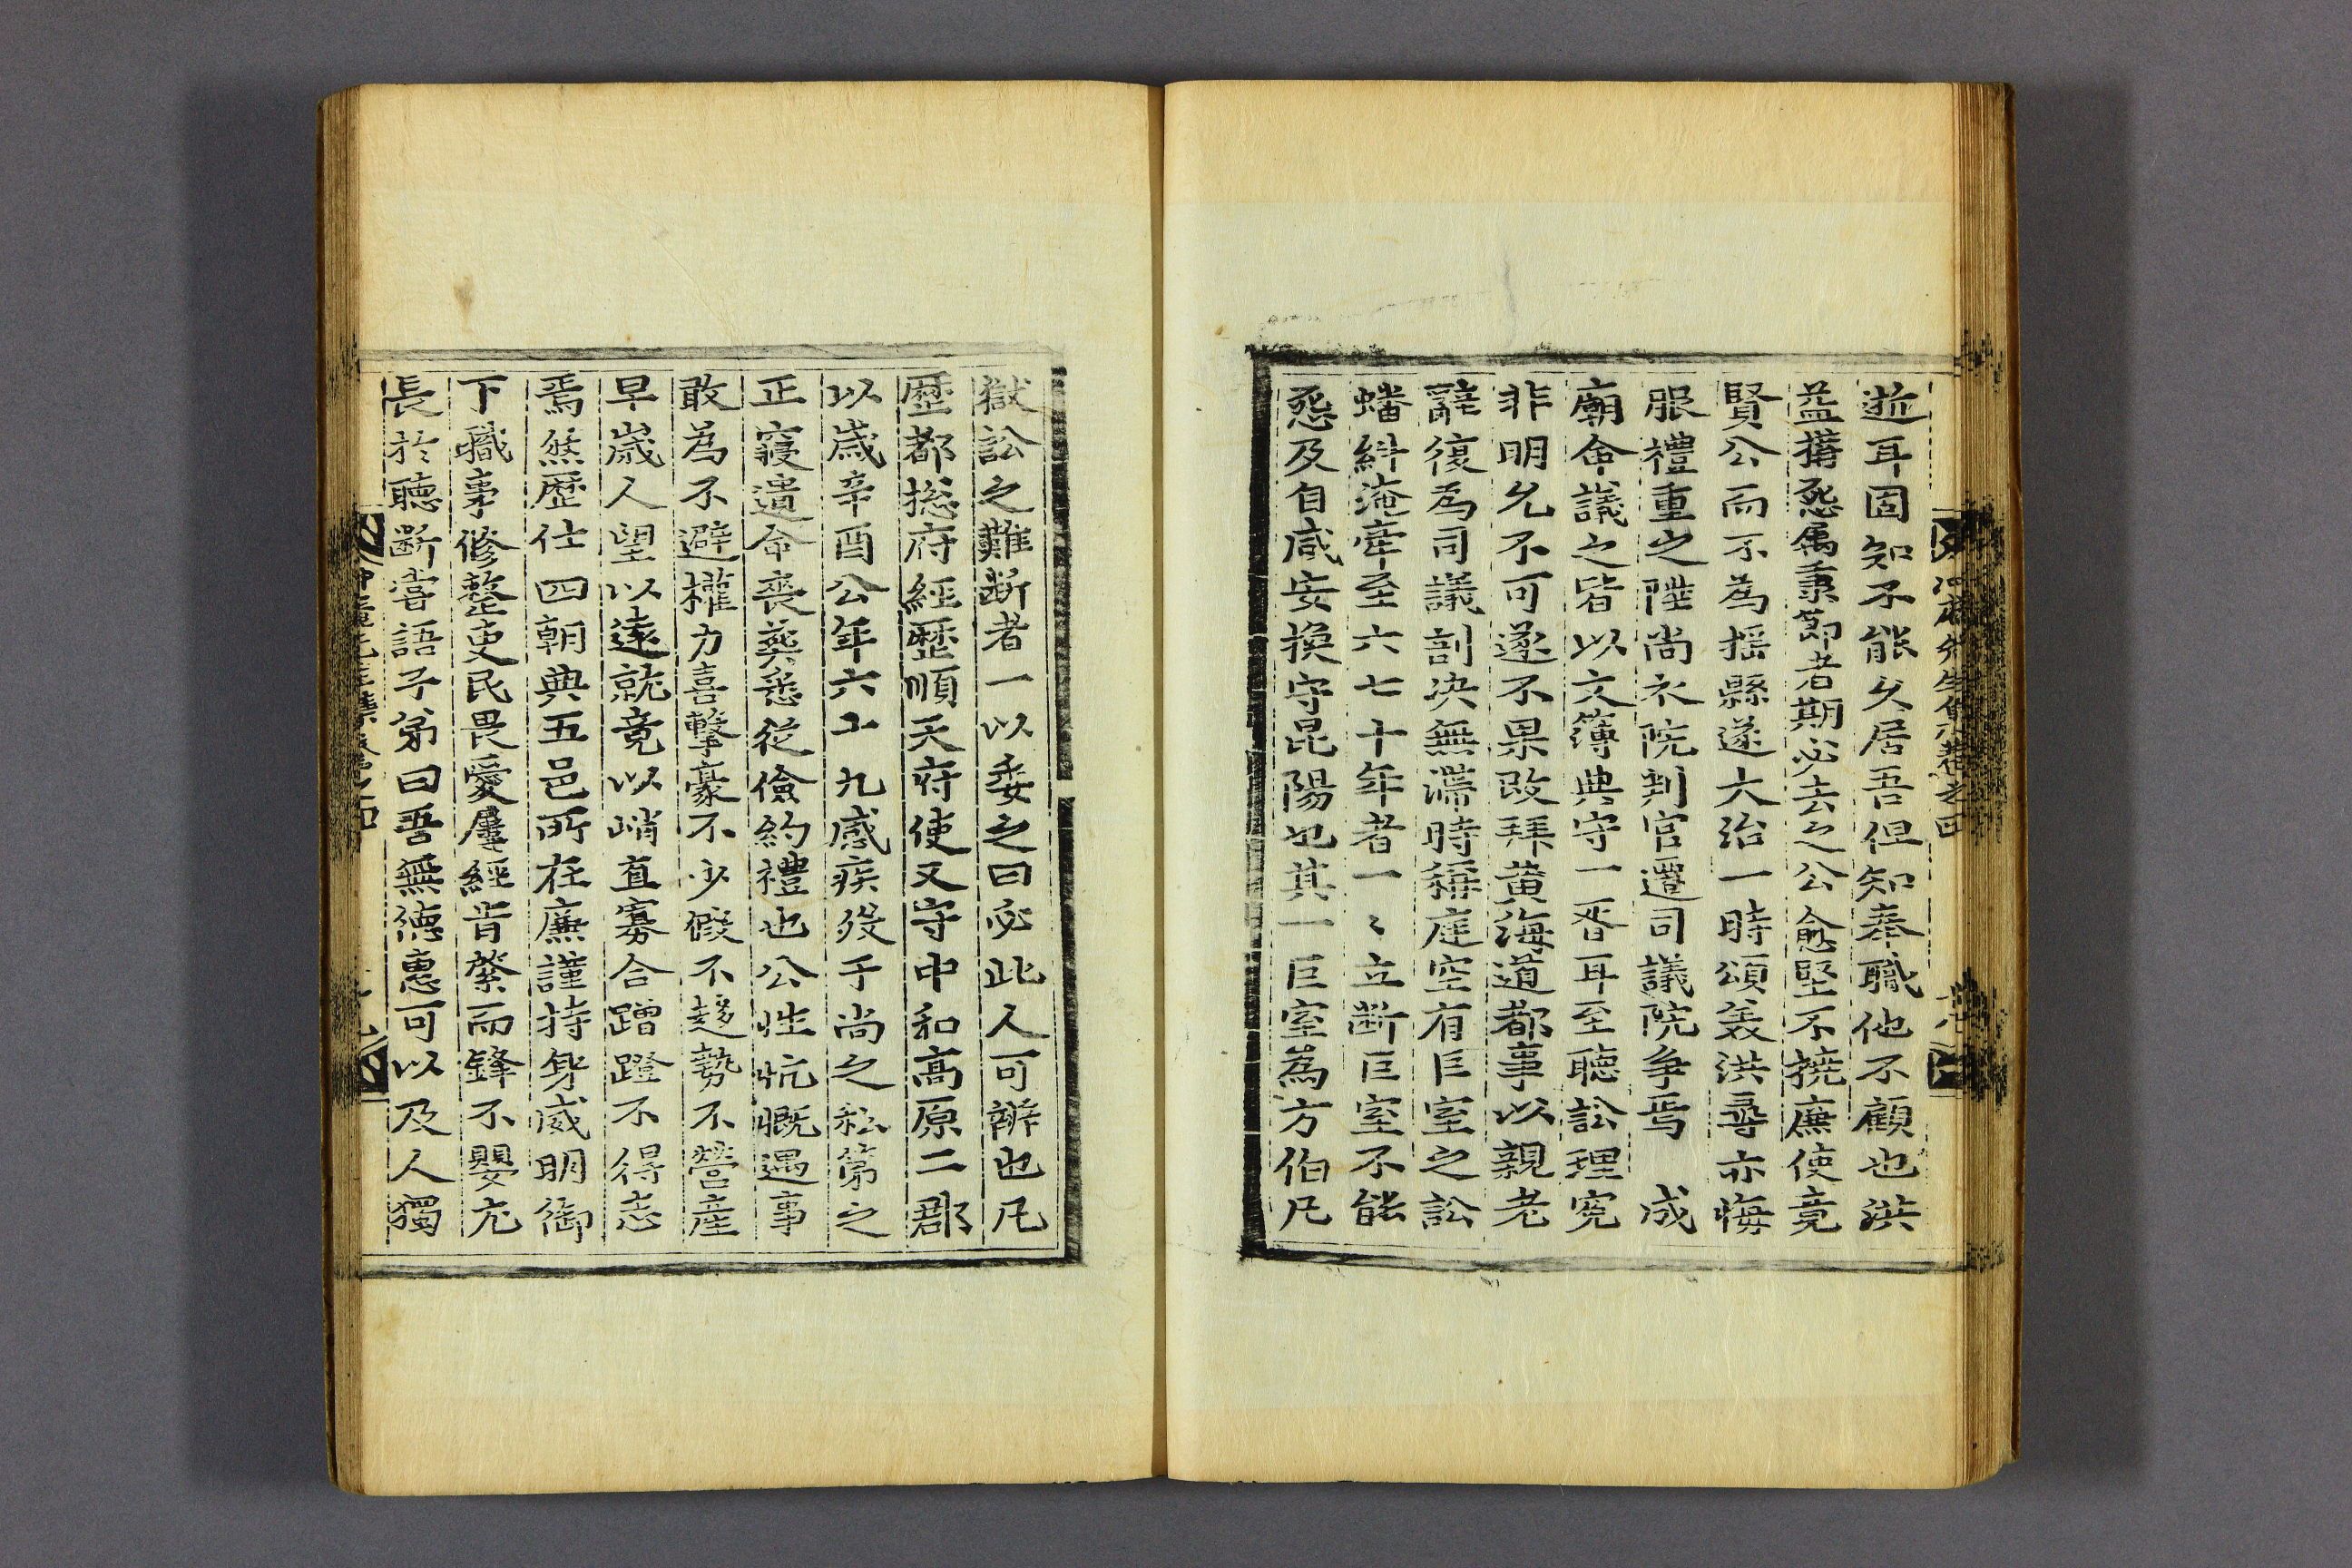 逝耳固知不能久居吾但知奉職他不顧也洪
益搆惎属秉節者期必去之公愈堅不撓廉使竟
賢公而不為搖縣遂大治一時頌美洪尋亦悔
服禮重之陞尚衣院判官遷司議院爭焉　成
廟命議之皆以文簿典守一胥耳至聽訟理寃
非明允不可遂不果改拜黃海道都事以親老
辭復為司議剖决無滯時稱庭空有巨室之訟
蟠糾淹牽至六七十年者一〻立斷巨室不能
惎及自咸安換守昆陽也其一巨室為方伯凡
獄訟之難斷者一以委之曰必此人可辦也凡
歷都摠府經歷順天府使又守中和高原二郡
以歲辛酉公年六十九感疾歿于尚之私第之
正寢遺命喪葬悉從儉約禮也公性忼慨遇事
敢為不避權力喜擊豪不少假不趍勢不營產
早歲人望以遠就竟以峭直寡合蹭蹬不得志
焉然歷仕四朝典五邑所在廉謹持身威明御
下職事修整吏民畏愛屢經肯綮而鋒不嬰尤
長於聽斷嘗語子弟曰吾無德惠可以及人獨